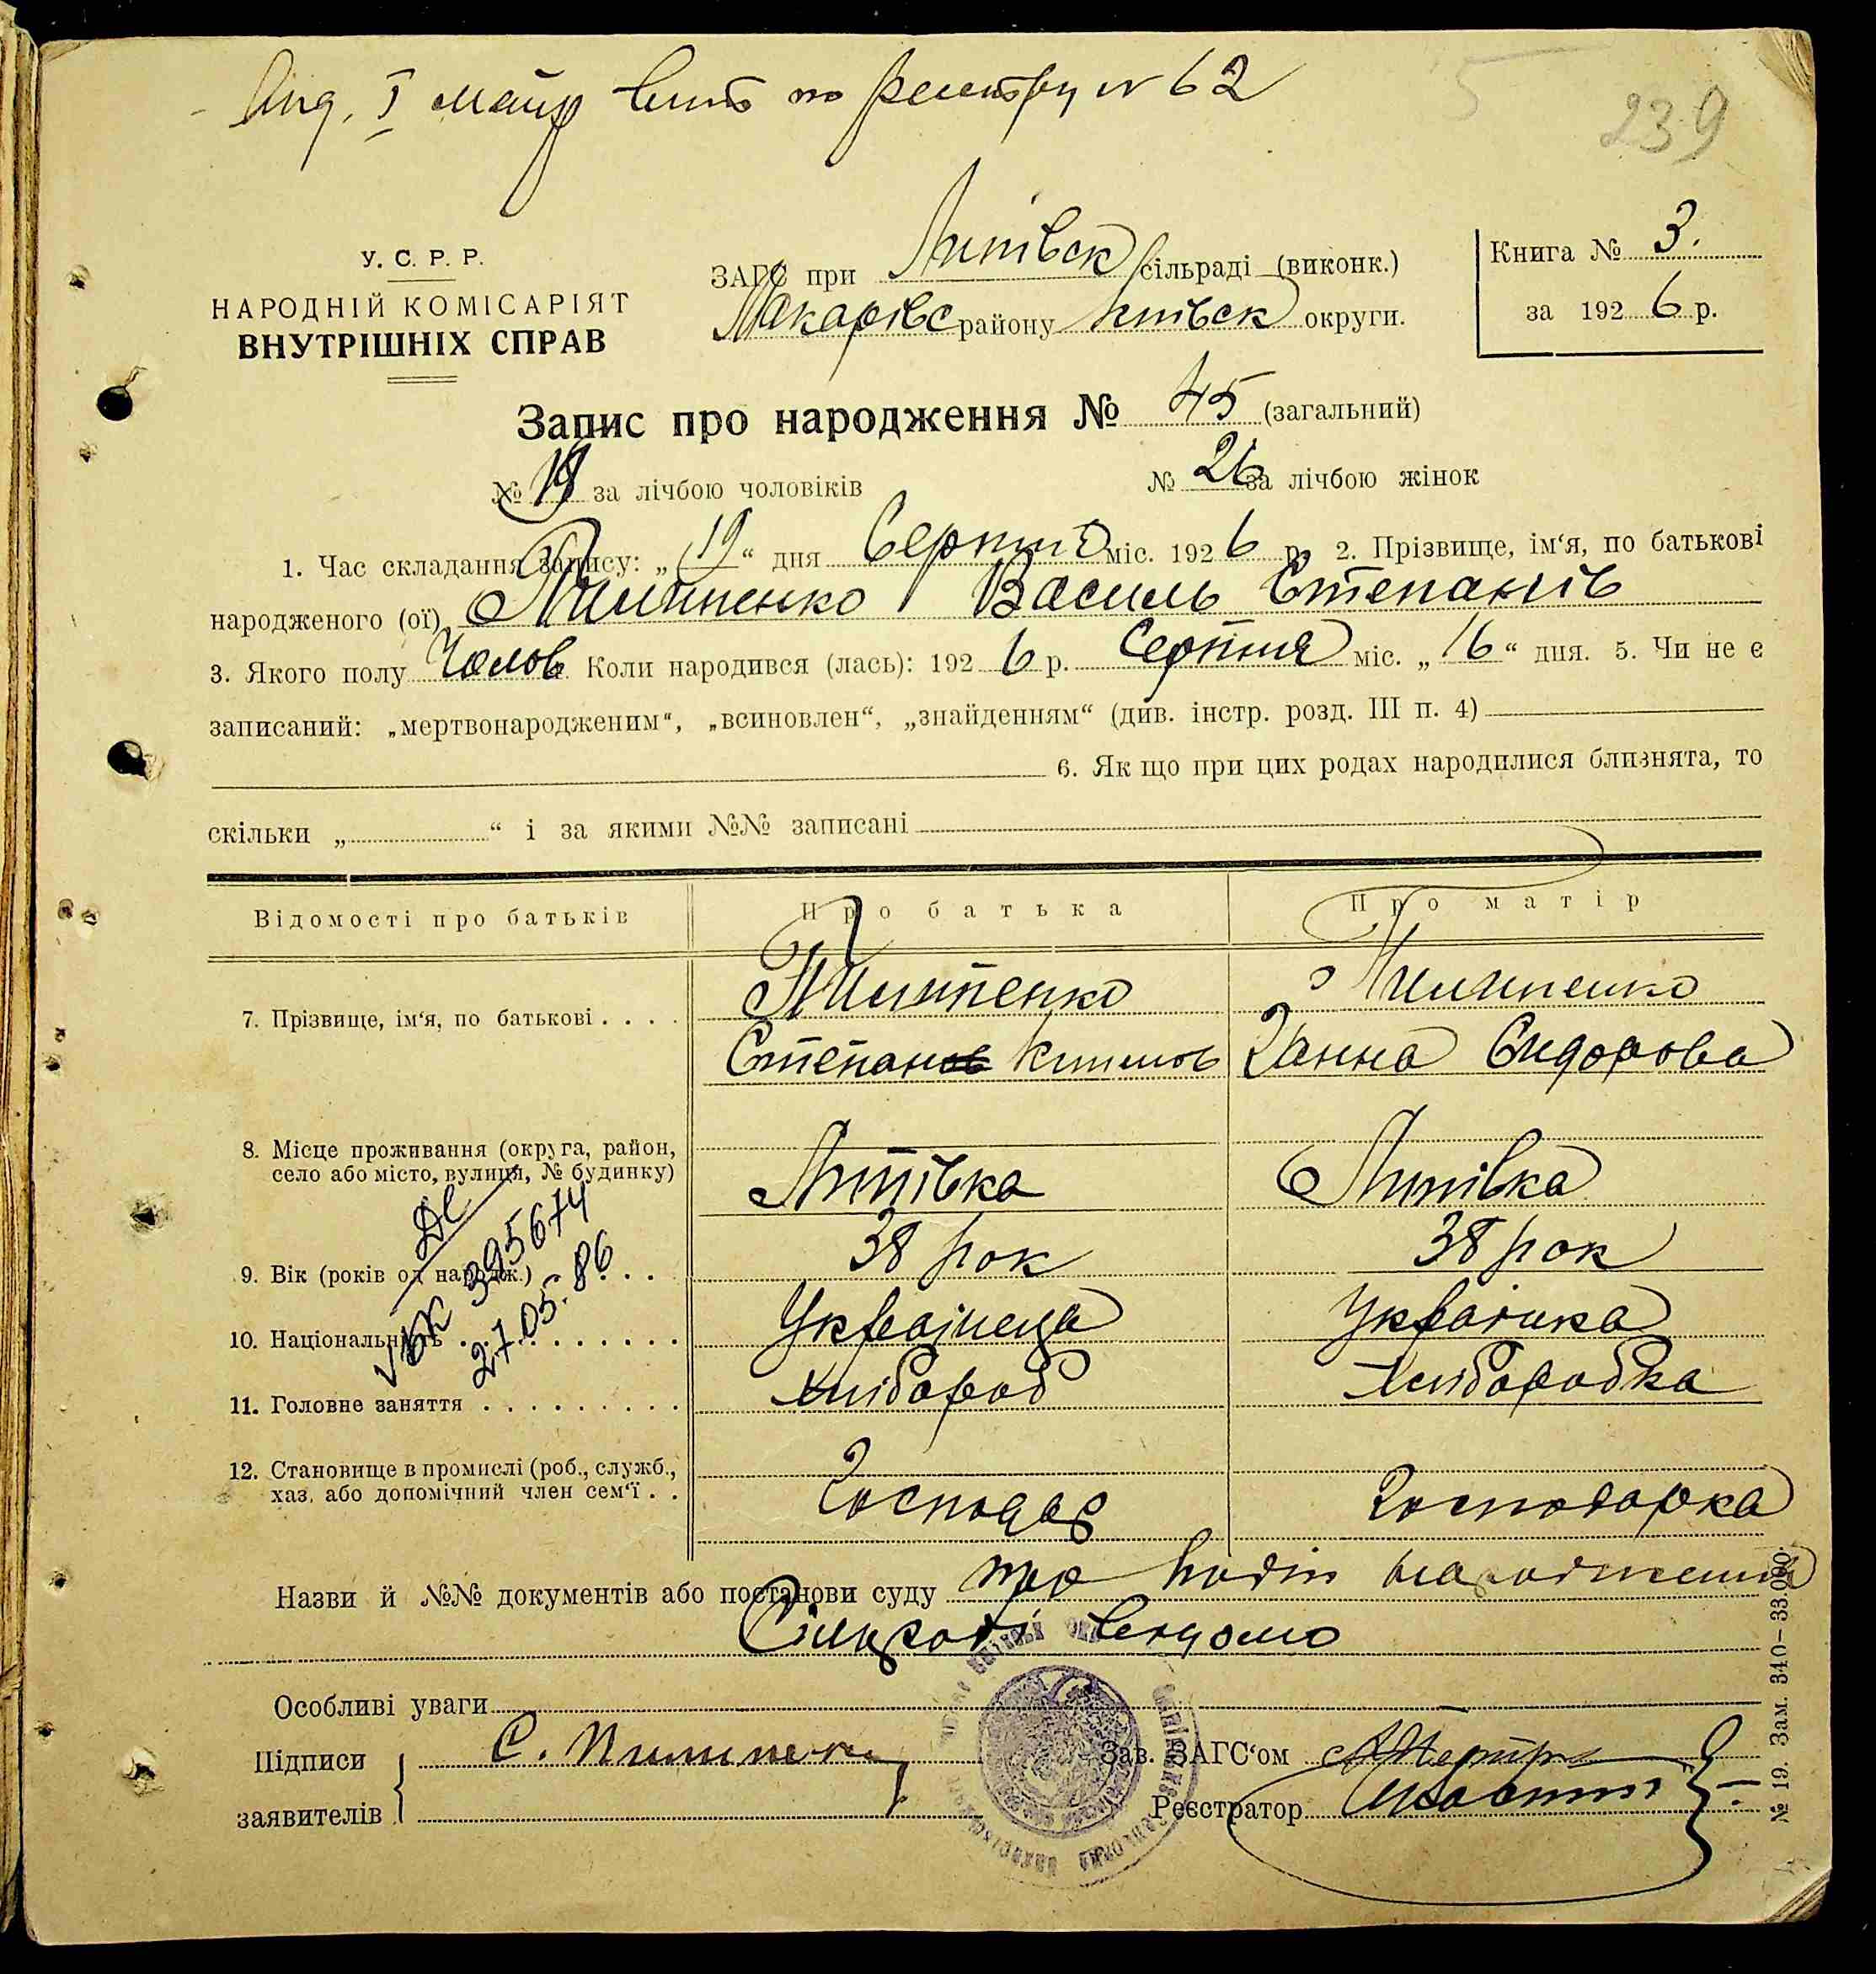 № 62
239
У. С. Р. Р.
НАРОДНІЙ КОМІСАРІЯТ
ВНУТРІШНІХ СПРАВ
ЗАГС при Липівск сільраді (виконк.)
Макарівс району Київск округи.
Книга № 3.
за 1926 р.
Запис про народження № 45 (загальний)
№ 19 за лічбою чоловіків
№ 26 за лічбою жінок
1. Час складання запису: „19“ дня Серпня міс. 1926 р. 2. Прізвище, ім‘я, по батькові
народженого (ої) Пилипенко Василь Степанів
3. Якого полу Чолов. Коли народився (лась): 1926 р. Серпня міс. „16“ дня. 5. Чи не є
записаний: „мертвонародженим“, „всиновлен“, „знайденням“ (див. інстр. розд. III п. 4)
6. Як що при цих родах народилися близнята, то
скільки „ “ і за якими №№ записані
Відомості про батьків
Про батька
Про матір
7. Прізвище, ім‘я, по батькові . . . .
Пилипенко
Степан
Пилипенко
Ганна Сидорова
8. Місце проживання (округа, район,
село або місто, вулиця, № будинку)
Липівка
Липівка
9. Вік (років од народж.) . . . .
38 рок
38 рок
10. Національність . . . . . . . . . .
Українець
Українка
11. Головне заняття . . . . . . . . .
Хлібороб
Хлібородка
12. Становище в промислі (роб., служб.,
хаз. або допомічний член сем‘ї . .
Господар
Господарка
ІІ-БК 395674
27.05.86
Назви й №№ документів або постанови суду про
Сільраді відомо
Особливі уваги
Підписи
заявителів
С. Пилипенко
Зав. ЗАГС‘ом
Реєстратор
№ 19. Зам. 340–33.000.